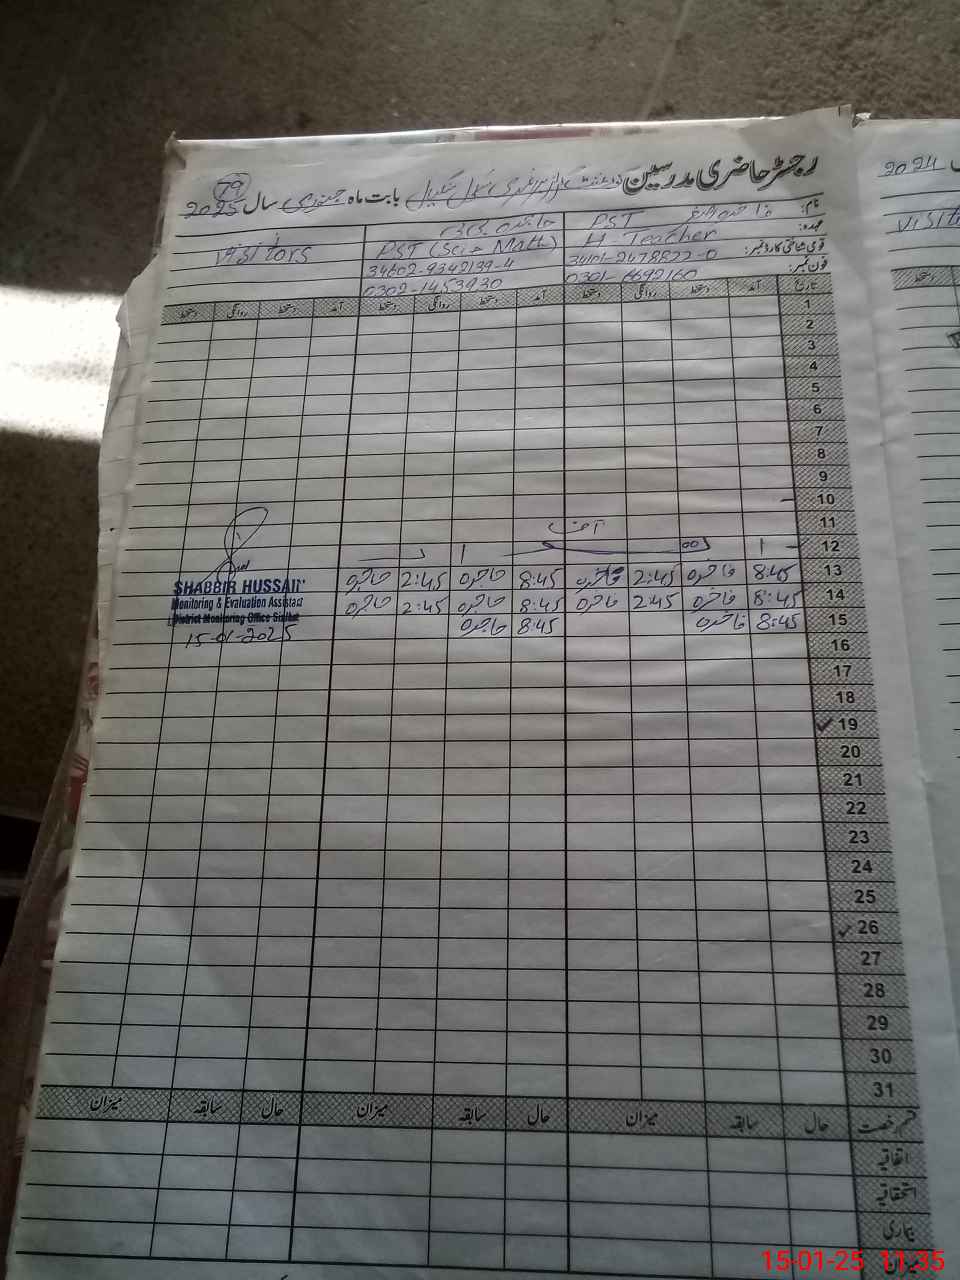 رجسٹر حاضری مدرسین گورنمنٹ گرلز پرائمری سکول بابت ماہ جنوری سال 2025
79
نام:
عہدہ: PST H-Teacher
PST (Sci-Math)
visitors
قومی شناختی کارڈ نمبر: 34101-2478822-0
34602-9342139-4
فون نمبر: 0301-6692160
0302-1453930
تاریخ آمد دستخط روانگی دستخط آمد دستخط روانگی دستخط آمد دستخط روانگی دستخط
1
2
3
4
5
6
7
8
9
10
11
12
13 8:45 2:45 8:45 حاجرہ 2:45 حاجرہ
14 8:45 2:45 8:45 حاجرہ 2:45 حاجرہ
15 8:45 8:45 حاجرہ
SHABBIR HUSSAIN
Monitoring & Evaluation Assistant
District Monitoring Office Sialkot
15-01-2025
16
17
18
19
20
21
22
23
24
25
26
27
28
29
30
31
قسم رخصت حال سابقہ میزان حال سابقہ میزان حال سابقہ میزان
اتفاقیہ
استحقاقیہ
بیماری
میزان
2024
دستخط
15-01-25 11:35